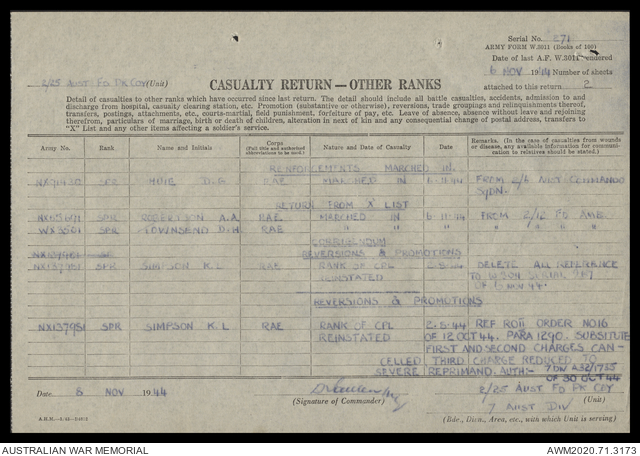 Serial No. 271
ARMY FORM W.3011 (Books of 100)
Date of last A.F. W.3011 rendered
6 NOV 1944 Number of sheets
attached to this return 2
2/25 AUST FD PK COY (Unit)
CASUALTY RETURN—OTHER RANKS
Detail of casualties to other ranks which have occurred since last return. The detail should include all battle casualties, accidents, admission to and
discharge from hospital, casualty clearing station, etc. Promotion (substantive or otherwise), reversions, trade groupings and relinquishments thereof,
transfers, postings, attachments, etc., courts-martial, field punishment, forfeiture of pay, etc. Leave of absence, absence without leave and rejoining
therefrom, particulars of marriage, birth or death of children, alteration in next of kin and any consequential change of postal address, transfers to
"X" List and any other items affecting a soldier's service.
Army No. Rank Name and Initials Corps (Full title and authorised abbreviations to be used.) Nature and Date of Casualty Remarks. (In the case of casualties from wounds or disease, any available information for communication to relatives should be stated.)
REINFORCEMENTS MARCHED IN.
SPR D.G. RAE MARCHED IN 6-11-44 FROM 2/6 AUST COMMANDO
SQDN.
RETURN FROM X LIST
SPR ROBERTSON A.A. RAE. MARCHED IN 6-11-44 FROM 2/12 FD AMB
WX3501 SPR TOWNSEND D.H. RAE " " " " " "
CORRIGENDUM
REVERSIONS & PROMOTIONS
NX137951 SPR SIMPSON K.L. RAE RANK OF CPL 2-5-44 DELETE ALL REFERENCE
REINSTATED
REVERSIONS & PROMOTIONS
NX137951 SPR SIMPSON K.L RAE RANK OF CPL 2-5-44 REF ROII ORDER NO16
REINSTATED OF 12 OCT 44. PARA 1290. SUBSTITUTE
FIRST AND SECOND CHARGES CAN-
CELLED THIRD CHARGE REDUCED TO
SEVERE REPRIMAND. AUTH:- 7 DIV A32/1755
OF 30 OCT 44
Date 8 NOV 1944
(Signature of Commander)
2/25 AUST FD PK COY
(Unit)
7 AUST DIV
(Bde., Divn., Area, etc., with which Unit is serving)
AUSTRALIAN WAR MEMORIAL
AWM2020.71.3173